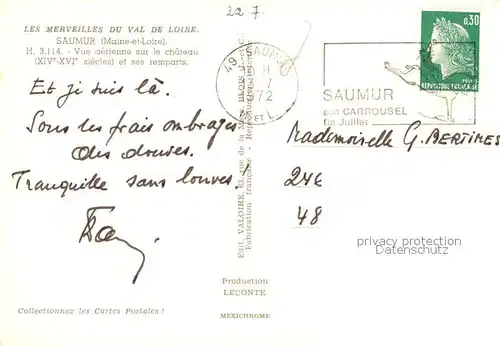 22 7.
LES MERVEILLES DU VAL DE LOIRE.
SAUMUR (Maine-et-Loire).
H. 3.114. - Vue aérienne sur le château
(XIVᵉ-XVIᵉ siècles) et ses remparts.
Et je suis là.
Sous les frais ombrages
des douves.
Tranquille sans louves!
Collectionnez les Cartes Postales!
Edit. VALOIRE, 63, rue de la
Fabrication française - Reproduction
Production
LECONTE
MEXICHROME
49 SAUMUR
H
7
1972
ET L
SAUMUR
son CARROUSEL
fin Juillet
0,30
POSTES
REPUBLIQUE FRANÇAISE
Mademoiselle G. BERTINES
246
48
privacy protection
Datenschutz